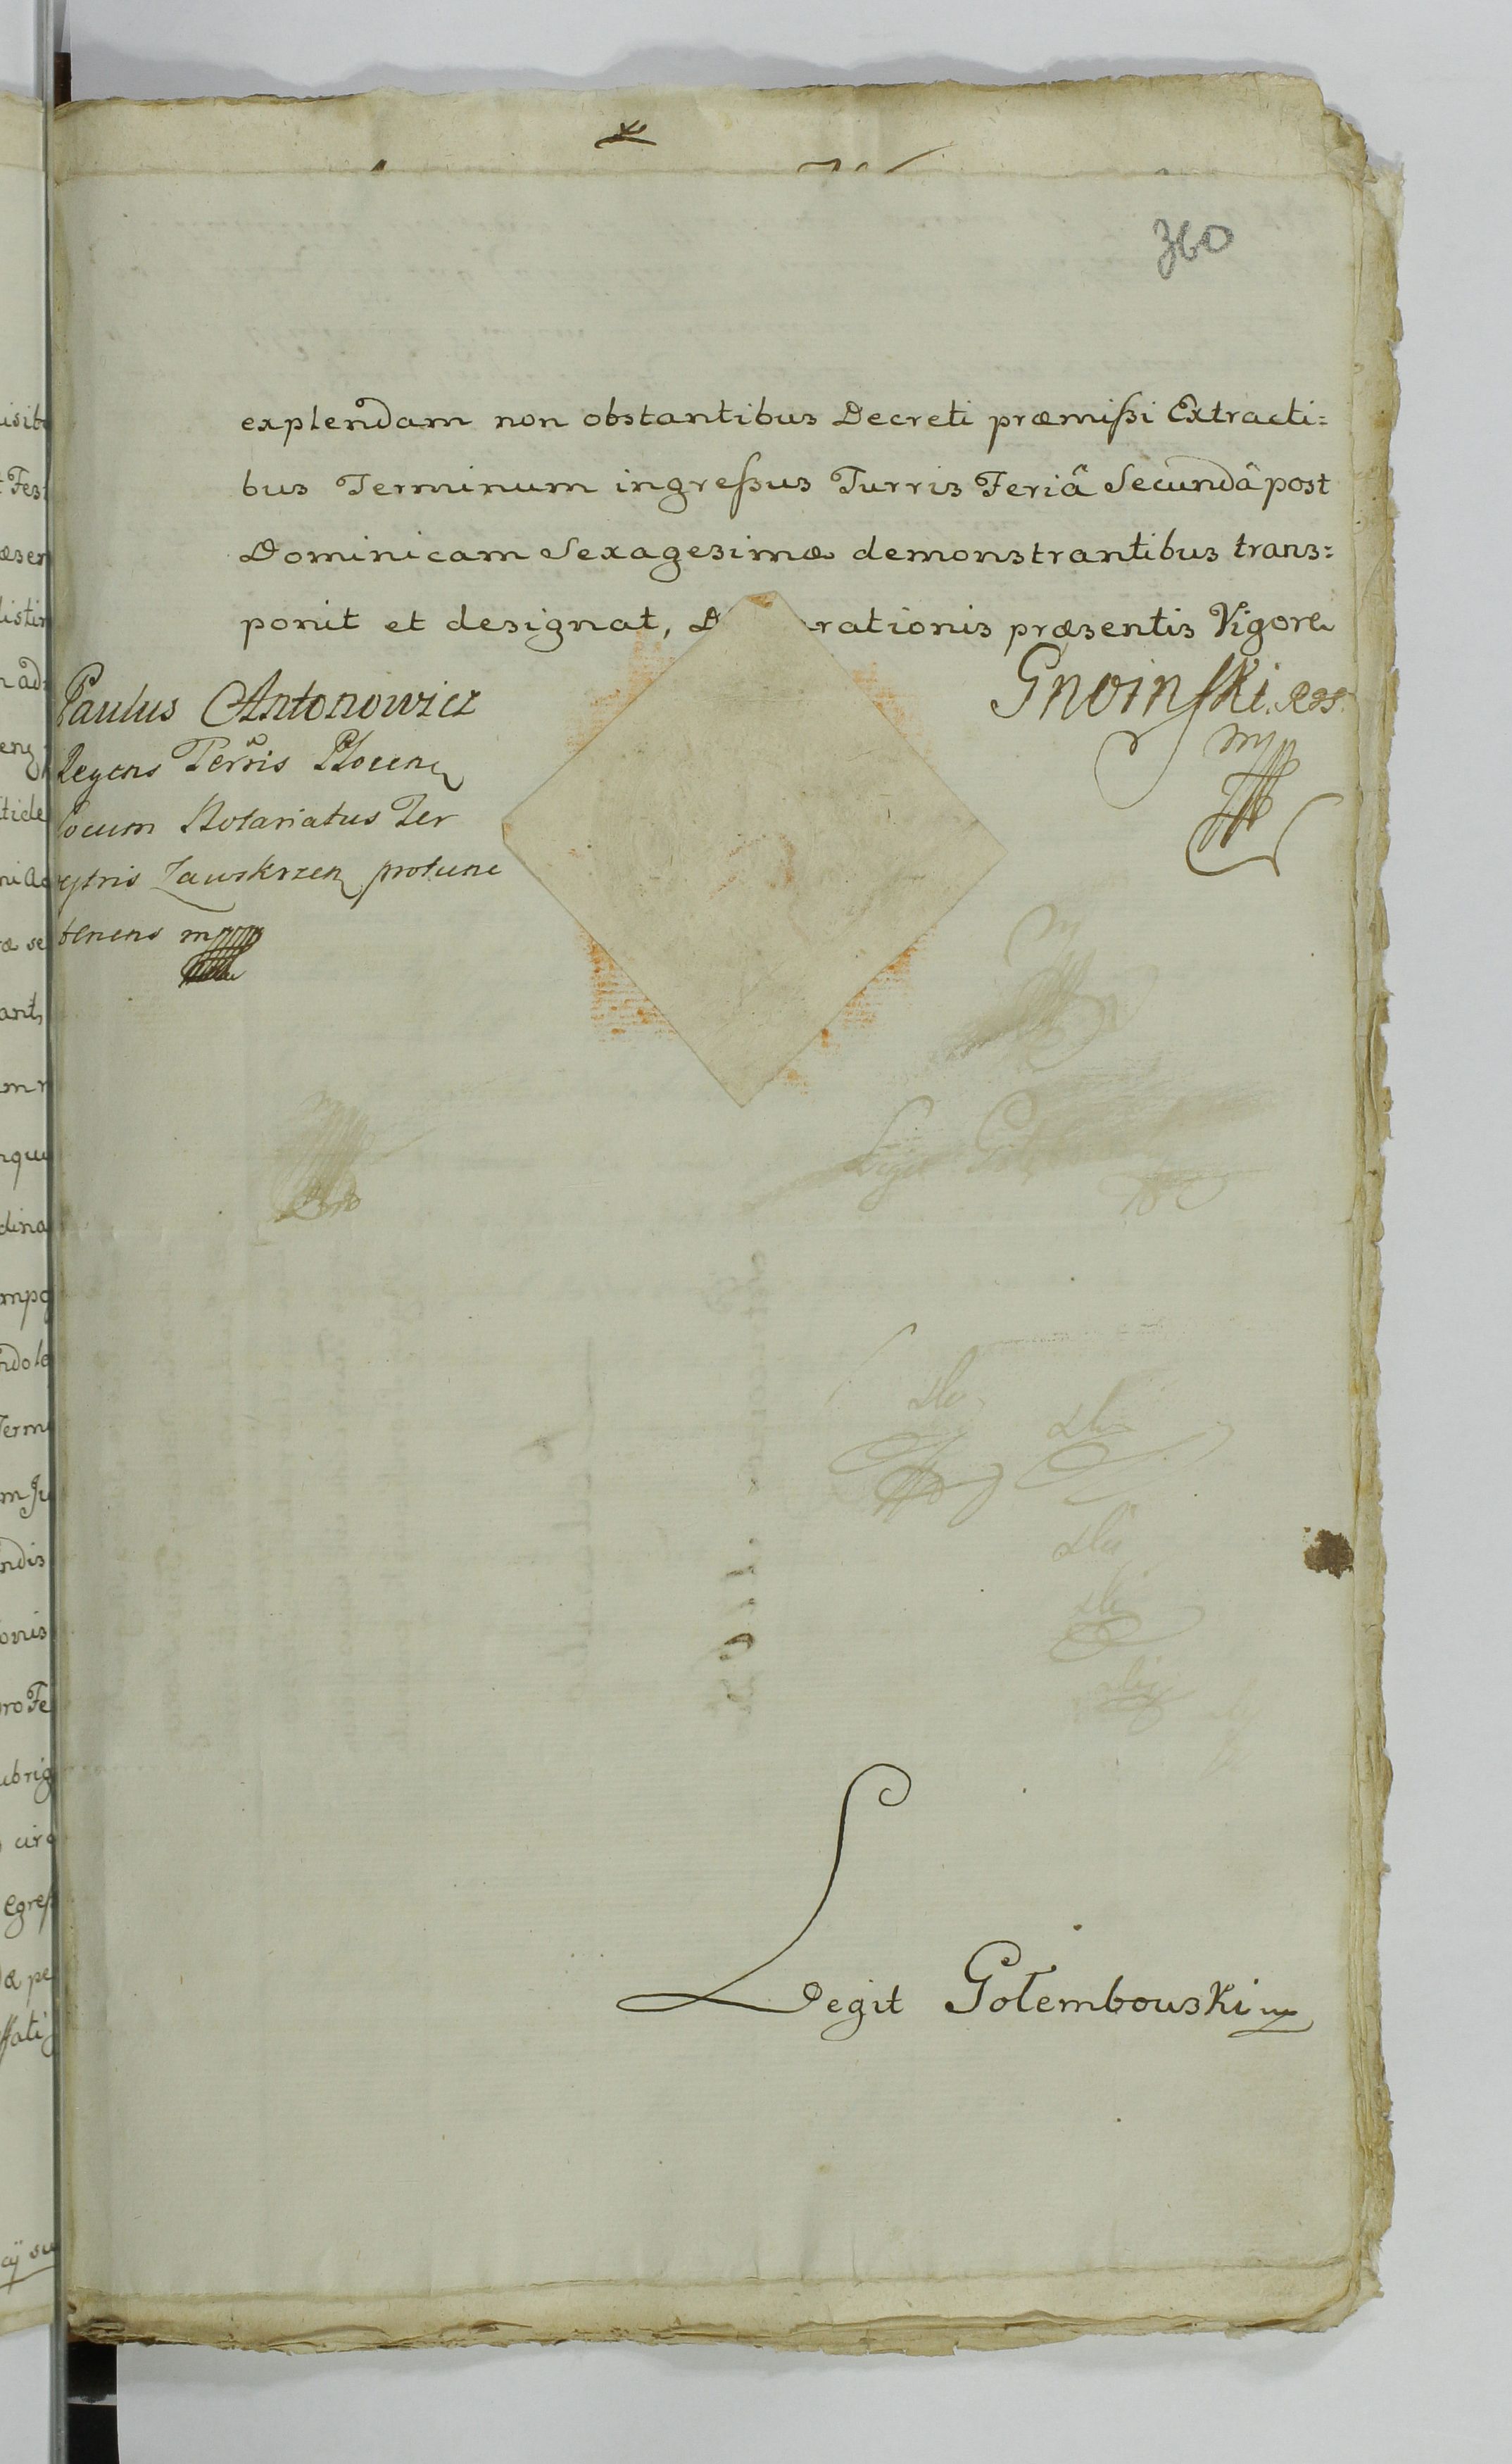 360
explendam non obstantibus Decreti præmißi Extracti=
bus Terminum ingreßus Turris Feriâ Secundâ post
Dominicam Sexagesimæ demonstrantibus trans=
ponit et designat, rationis præsentis Vigore
Paulus Antonowicz
Regens Terris Plocen
locum Notariatus Ter
rytris Zawskrzen protunc
tenens mpp
Gnoinski
mpp
Legit Gołembowski mp